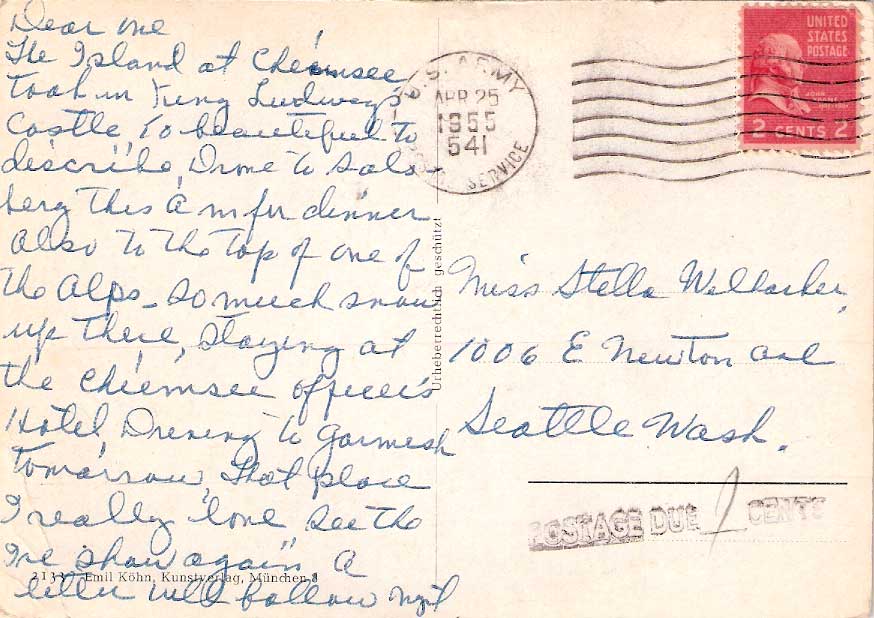 Dear one
The Island at Chiemsee
Took in King Ludwey's
Castle, To beautiful to
discribe, Drove to Sals-
berg This A m for dinner
also to the top of one of
the Alps - so much snow
up there, Staying at
the Chiemsee officer's
Hotel, Driving to Garmesh
Tomorrow, That place
I really love See the
Ice show again A
letter will follow
2133 Emil Köhn, Kunstverlag, München 8
Urheberrechtlich geschützt
U.S. ARMY
APR 25
1955
541
SERVICE
UNITED
STATES
POSTAGE
JOHN
2 CENTS 2
Miss Stella
1006 E Newton ave
Seattle Wash.
POSTAGE DUE CENTS